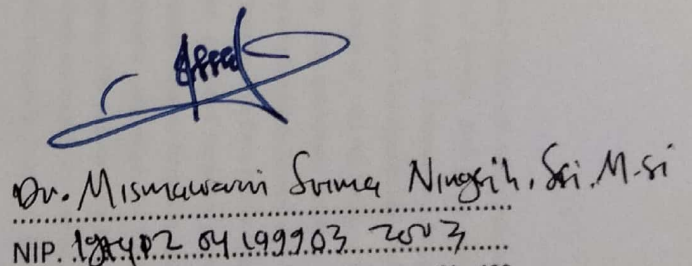 Dr. Mismawarni Srima Ningsih, S.si. M.si
NIP. 04 199903 2003